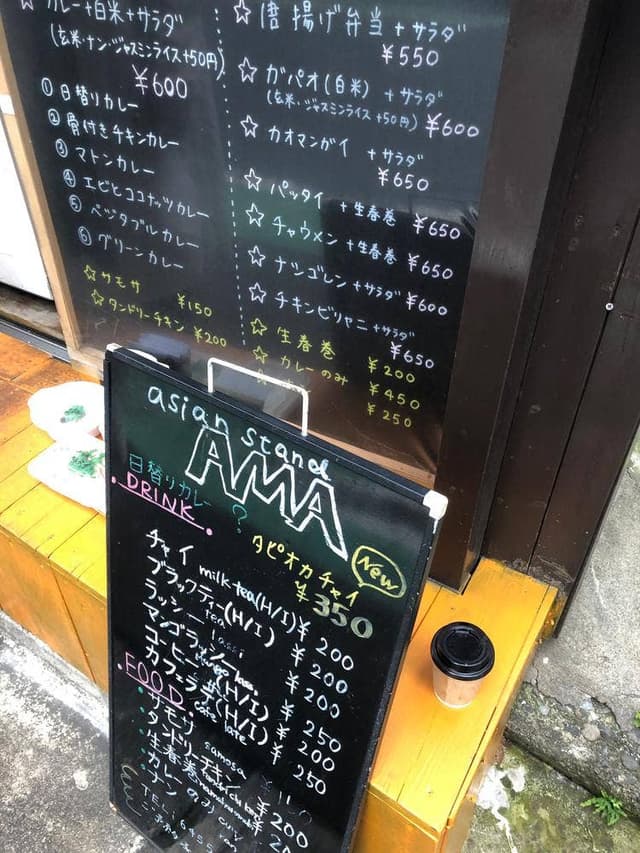 ☆カレー+白米+サラダ
(玄米・ナン・ジャスミンライス+50円)
¥600
① 日替りカレー
② 骨付きチキンカレー
③ マトンカレー
④ エビとココナッツカレー
⑤ ベジタブルカレー
⑥ グリーンカレー
☆ サモサ ¥150
☆ タンドリーチキン ¥200
☆ 唐揚げ弁当+サラダ
¥550
☆ ガパオ(白米)+サラダ
(玄米・ジャスミンライス+50円) ¥600
☆ カオマンガイ +サラダ
¥650
☆ パッタイ +生春巻 ¥650
☆ チャウメン+生春巻 ¥650
☆ ナシゴレン+サラダ ¥600
☆ チキンビリヤニ+サラダ
¥650
☆ 生春巻 ¥200
☆ カレーのみ ¥450
¥250
asian stand
AMA
日替りカレー ?
・DRINK・
New
タピオカチャイ
¥350
チャイ milk tea(H/I) ¥200
ブラックティー(H/I) ¥200
ラッシー lassi ¥200
マンゴラッシー ¥250
コーヒー(H/I) ¥200
カフェラテ(H/I) ¥250
・FOOD・ cafe latte
サモサ samosa
タンドリーチキン ¥200
生春巻
カレーのみ
ナン
TEL